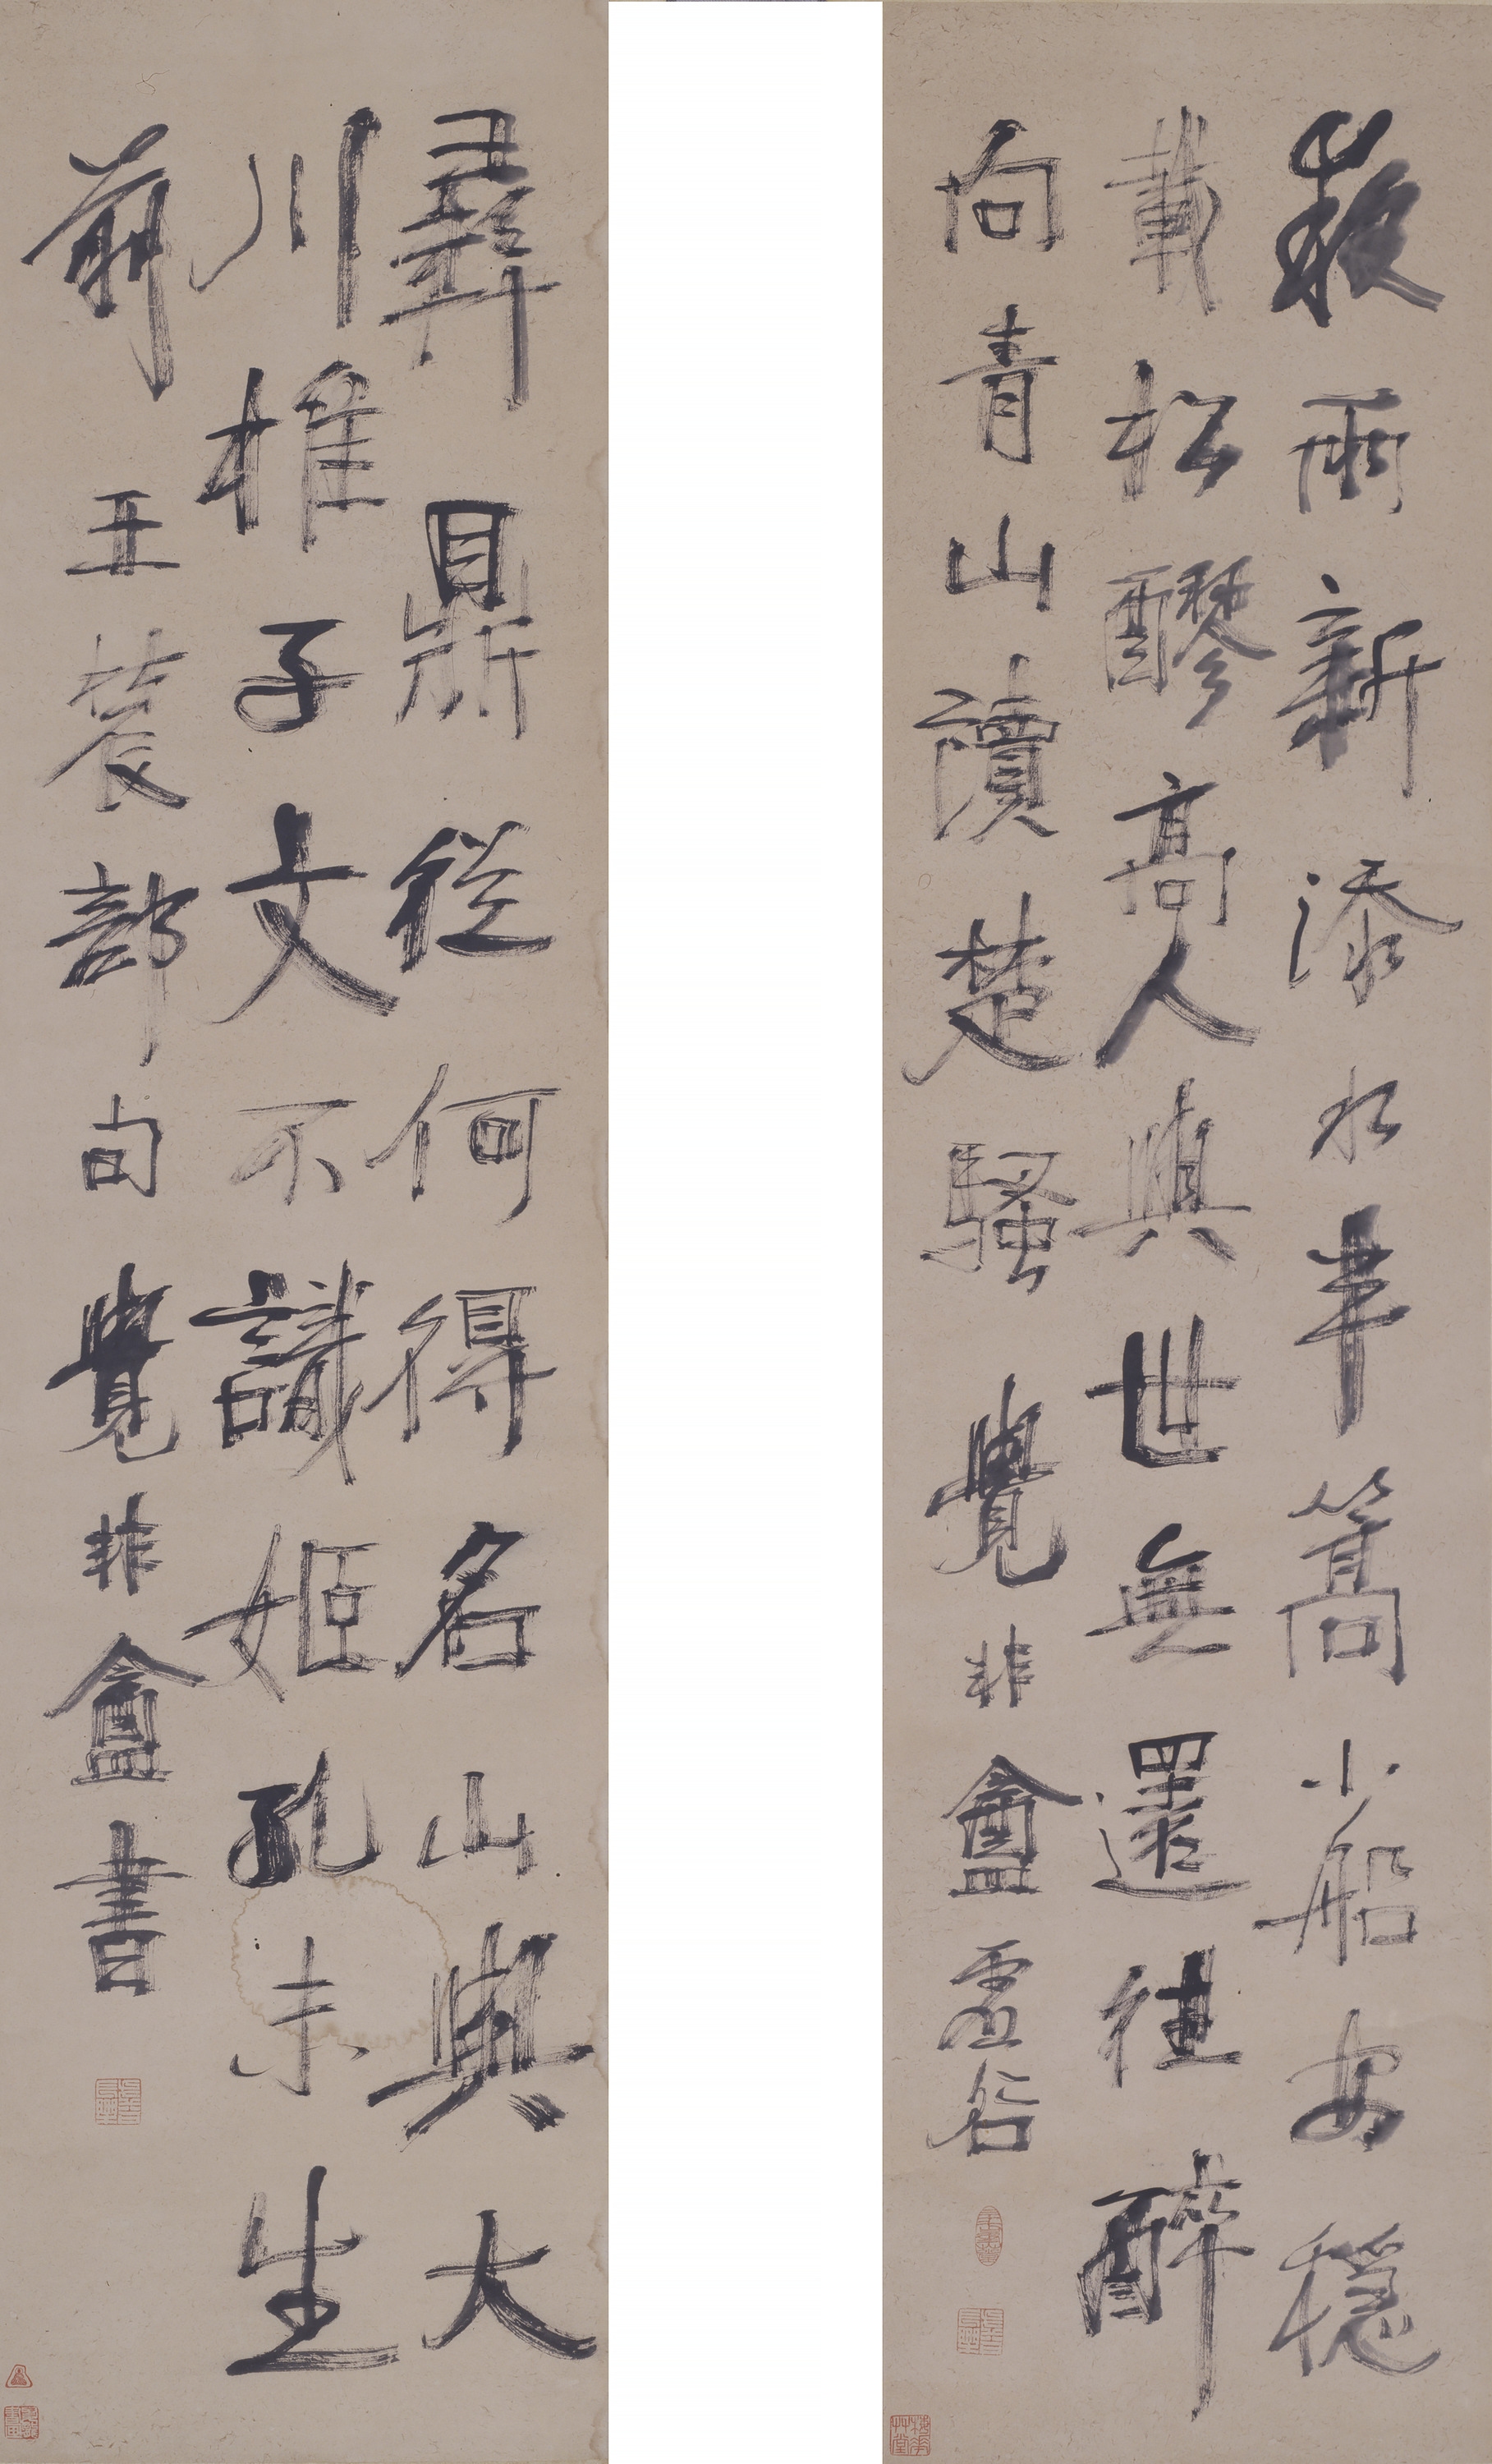 夜雨新添水半篙小船安穩
載松醪高人與世無還往醉
向青山讀楚騷 覺非盦虛谷
彝鼎從何得名山與大
川椎子文不識姬孔未生
前 王農部句覺非盦書